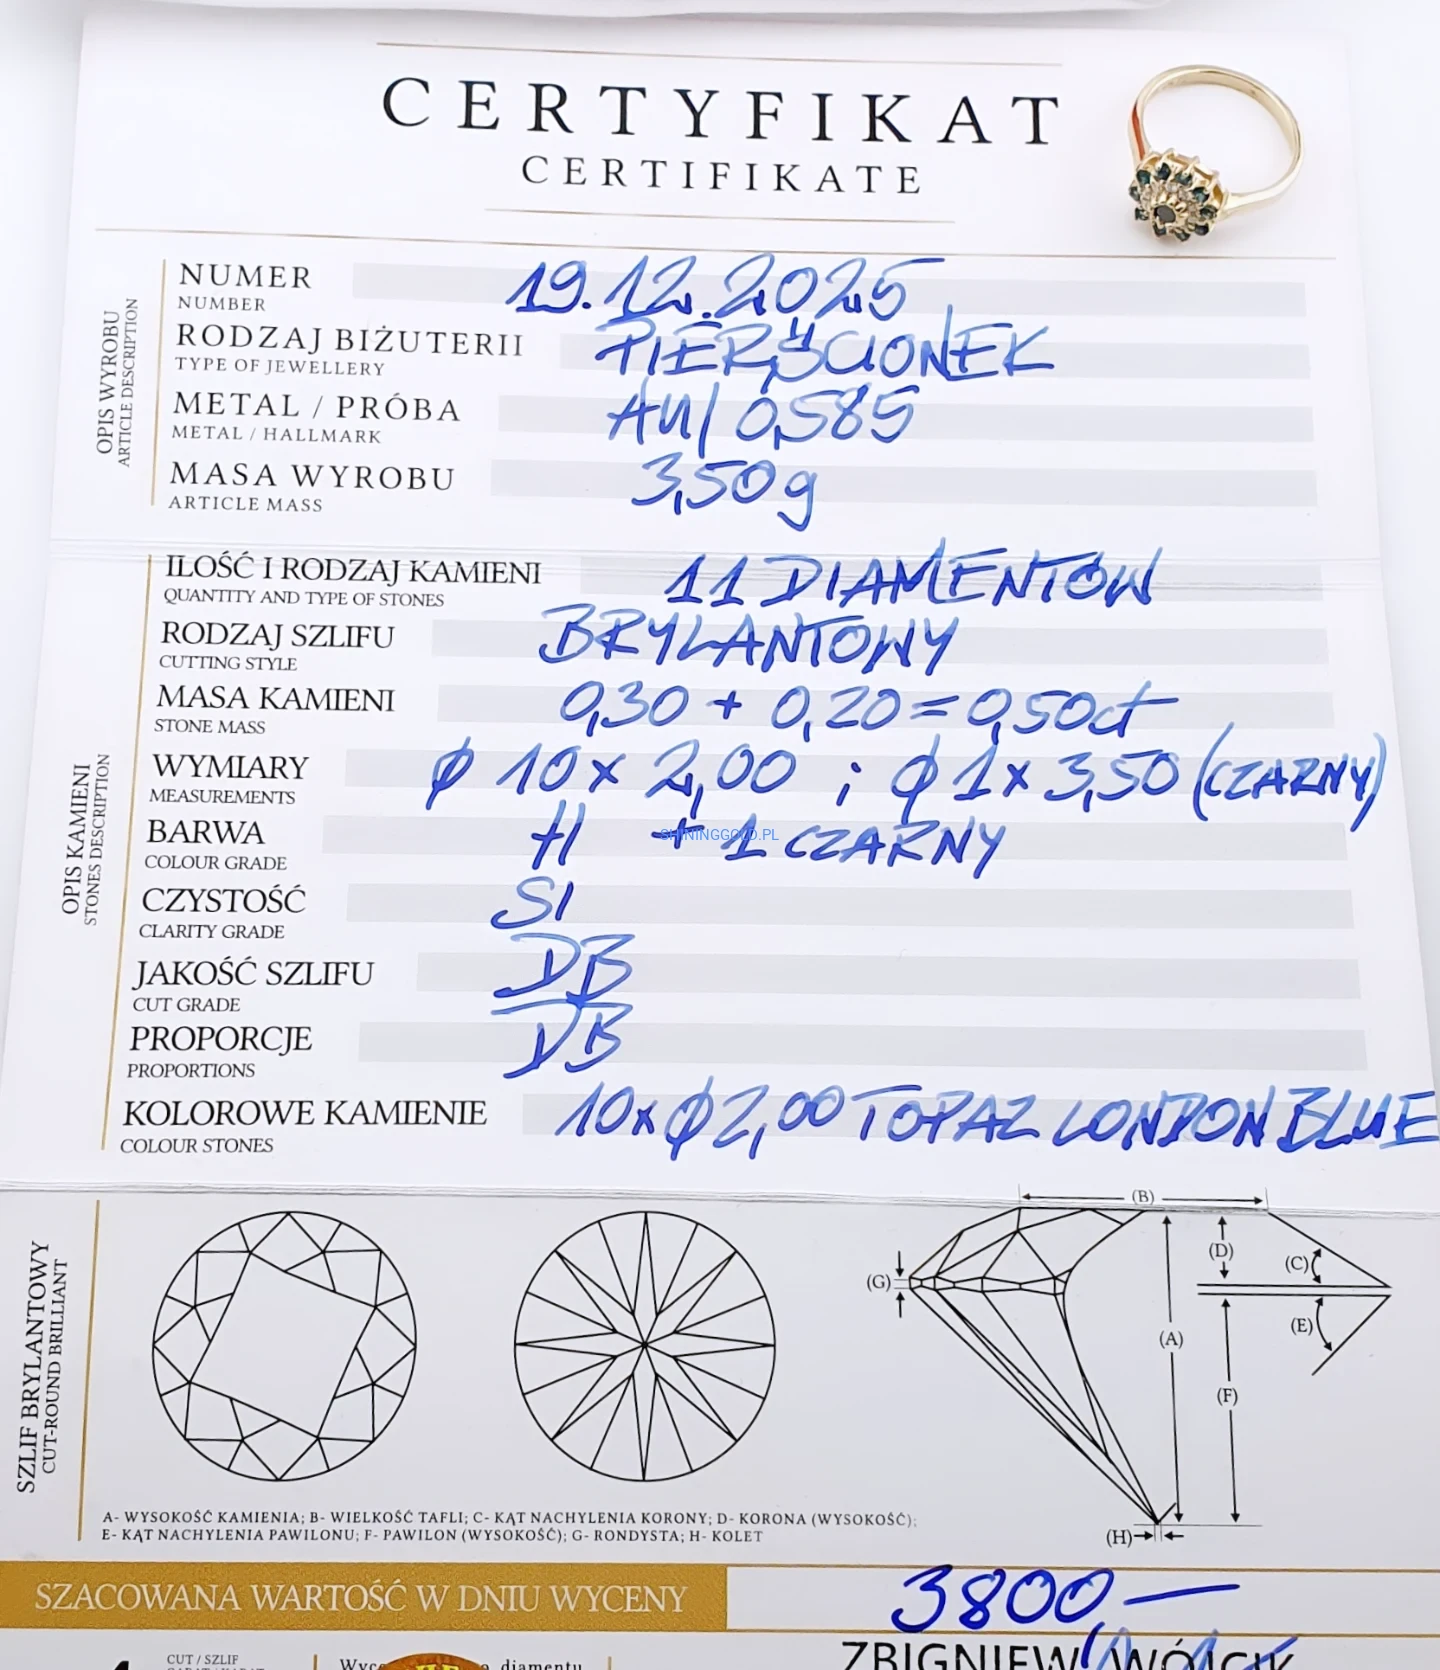 CERTYFIKAT
CERTIFIKATE
OPIS WYROBU
ARTICLE DESCRIPTION
NUMER 19.12.2025
NUMBER
RODZAJ BIŻUTERII PIERŚCIONEK
TYPE OF JEWELLERY
METAL / PRÓBA AU/ 0,585
METAL / HALLMARK
MASA WYROBU 3,50g
ARTICLE MASS
OPIS KAMIENI
STONES DESCRIPTION
ILOŚĆ I RODZAJ KAMIENI 11 DIAMENTÓW
QUANTITY AND TYPE OF STONES
RODZAJ SZLIFU BRYLANTOWY
CUTTING STYLE
MASA KAMIENI 0,30 + 0,20 = 0,50ct
STONE MASS
WYMIARY φ 10 x 2,00 ; φ 1 x 3,50 (CZARNY)
MEASUREMENTS
BARWA H + 1 CZARNY
SHININGGOLD.PL
COLOUR GRADE
CZYSTOŚĆ SI
CLARITY GRADE
JAKOŚĆ SZLIFU DB
CUT GRADE
PROPORCJE DB
PROPORTIONS
KOLOROWE KAMIENIE 10x φ2,00 TOPAZ LONDON BLUE
COLOUR STONES
SZLIF BRYLANTOWY
CUT-ROUND BRILLIANT
(B)
(D)
(C)
(G)
(E)
(A)
(F)
(H)
A- WYSOKOŚĆ KAMIENIA; B- WIELKOŚĆ TAFLI; C- KĄT NACHYLENIA KORONY; D- KORONA (WYSOKOŚĆ);
E- KĄT NACHYLENIA PAWILONU; F- PAWILON (WYSOKOŚĆ); G- RONDYSTA; H- KOLET
SZACOWANA WARTOŚĆ W DNIU WYCENY 3800,—
ZBIGNIEW WÓJCIK
CUT / SZLIF
diamentu